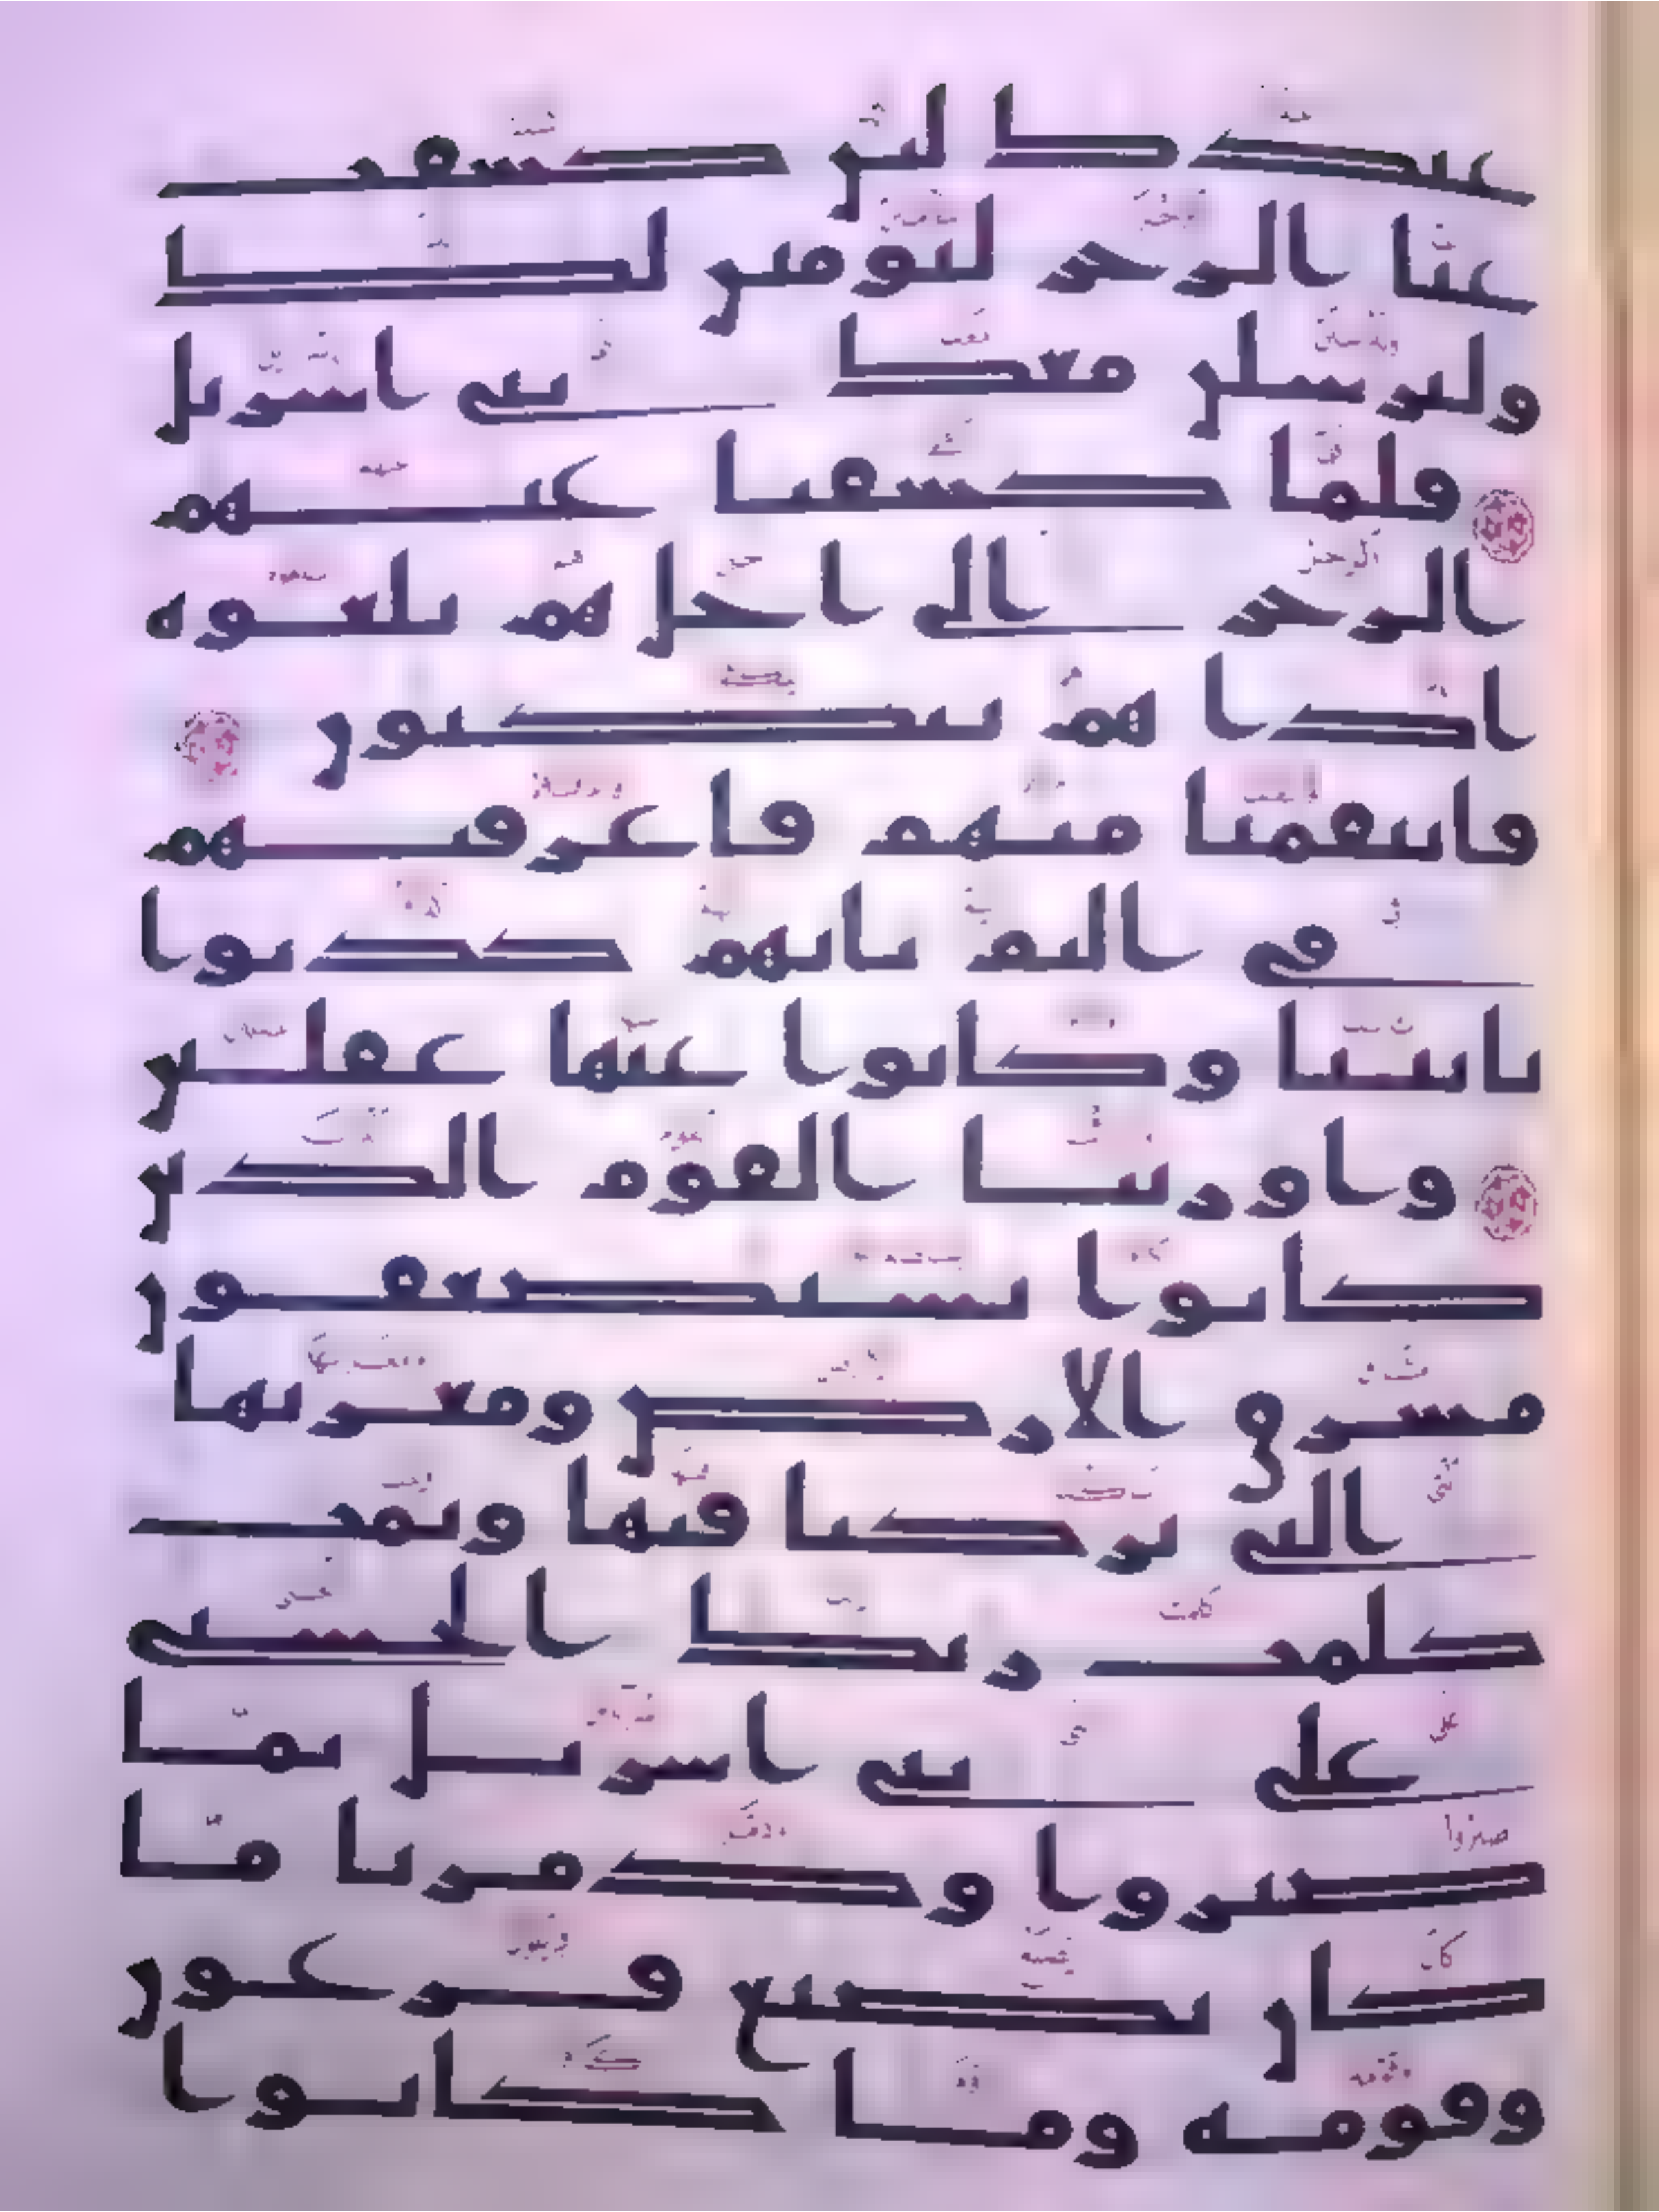 عندك لئن كشفت
عنا الرجز لنؤمنن لك
ولنرسلن معك بني اسريل
فلما كشفنا عنهم
الرجز الى اجل هم بلغوه
اذا هم ينكثون
فانتقمنا منهم فاغرقنهم
في اليم بانهم كذبوا
بايتنا وكانوا عنها غفلين
واورثنا القوم الذين
كانوا يستضعفون
مشرق الارض ومغربها
التي بركنا فيها وتمت
كلمت ربك الحسنى
على بني اسريل بما
صبروا ودمرنا ما
كان يصنع فرعون
وقومه وما كانوا